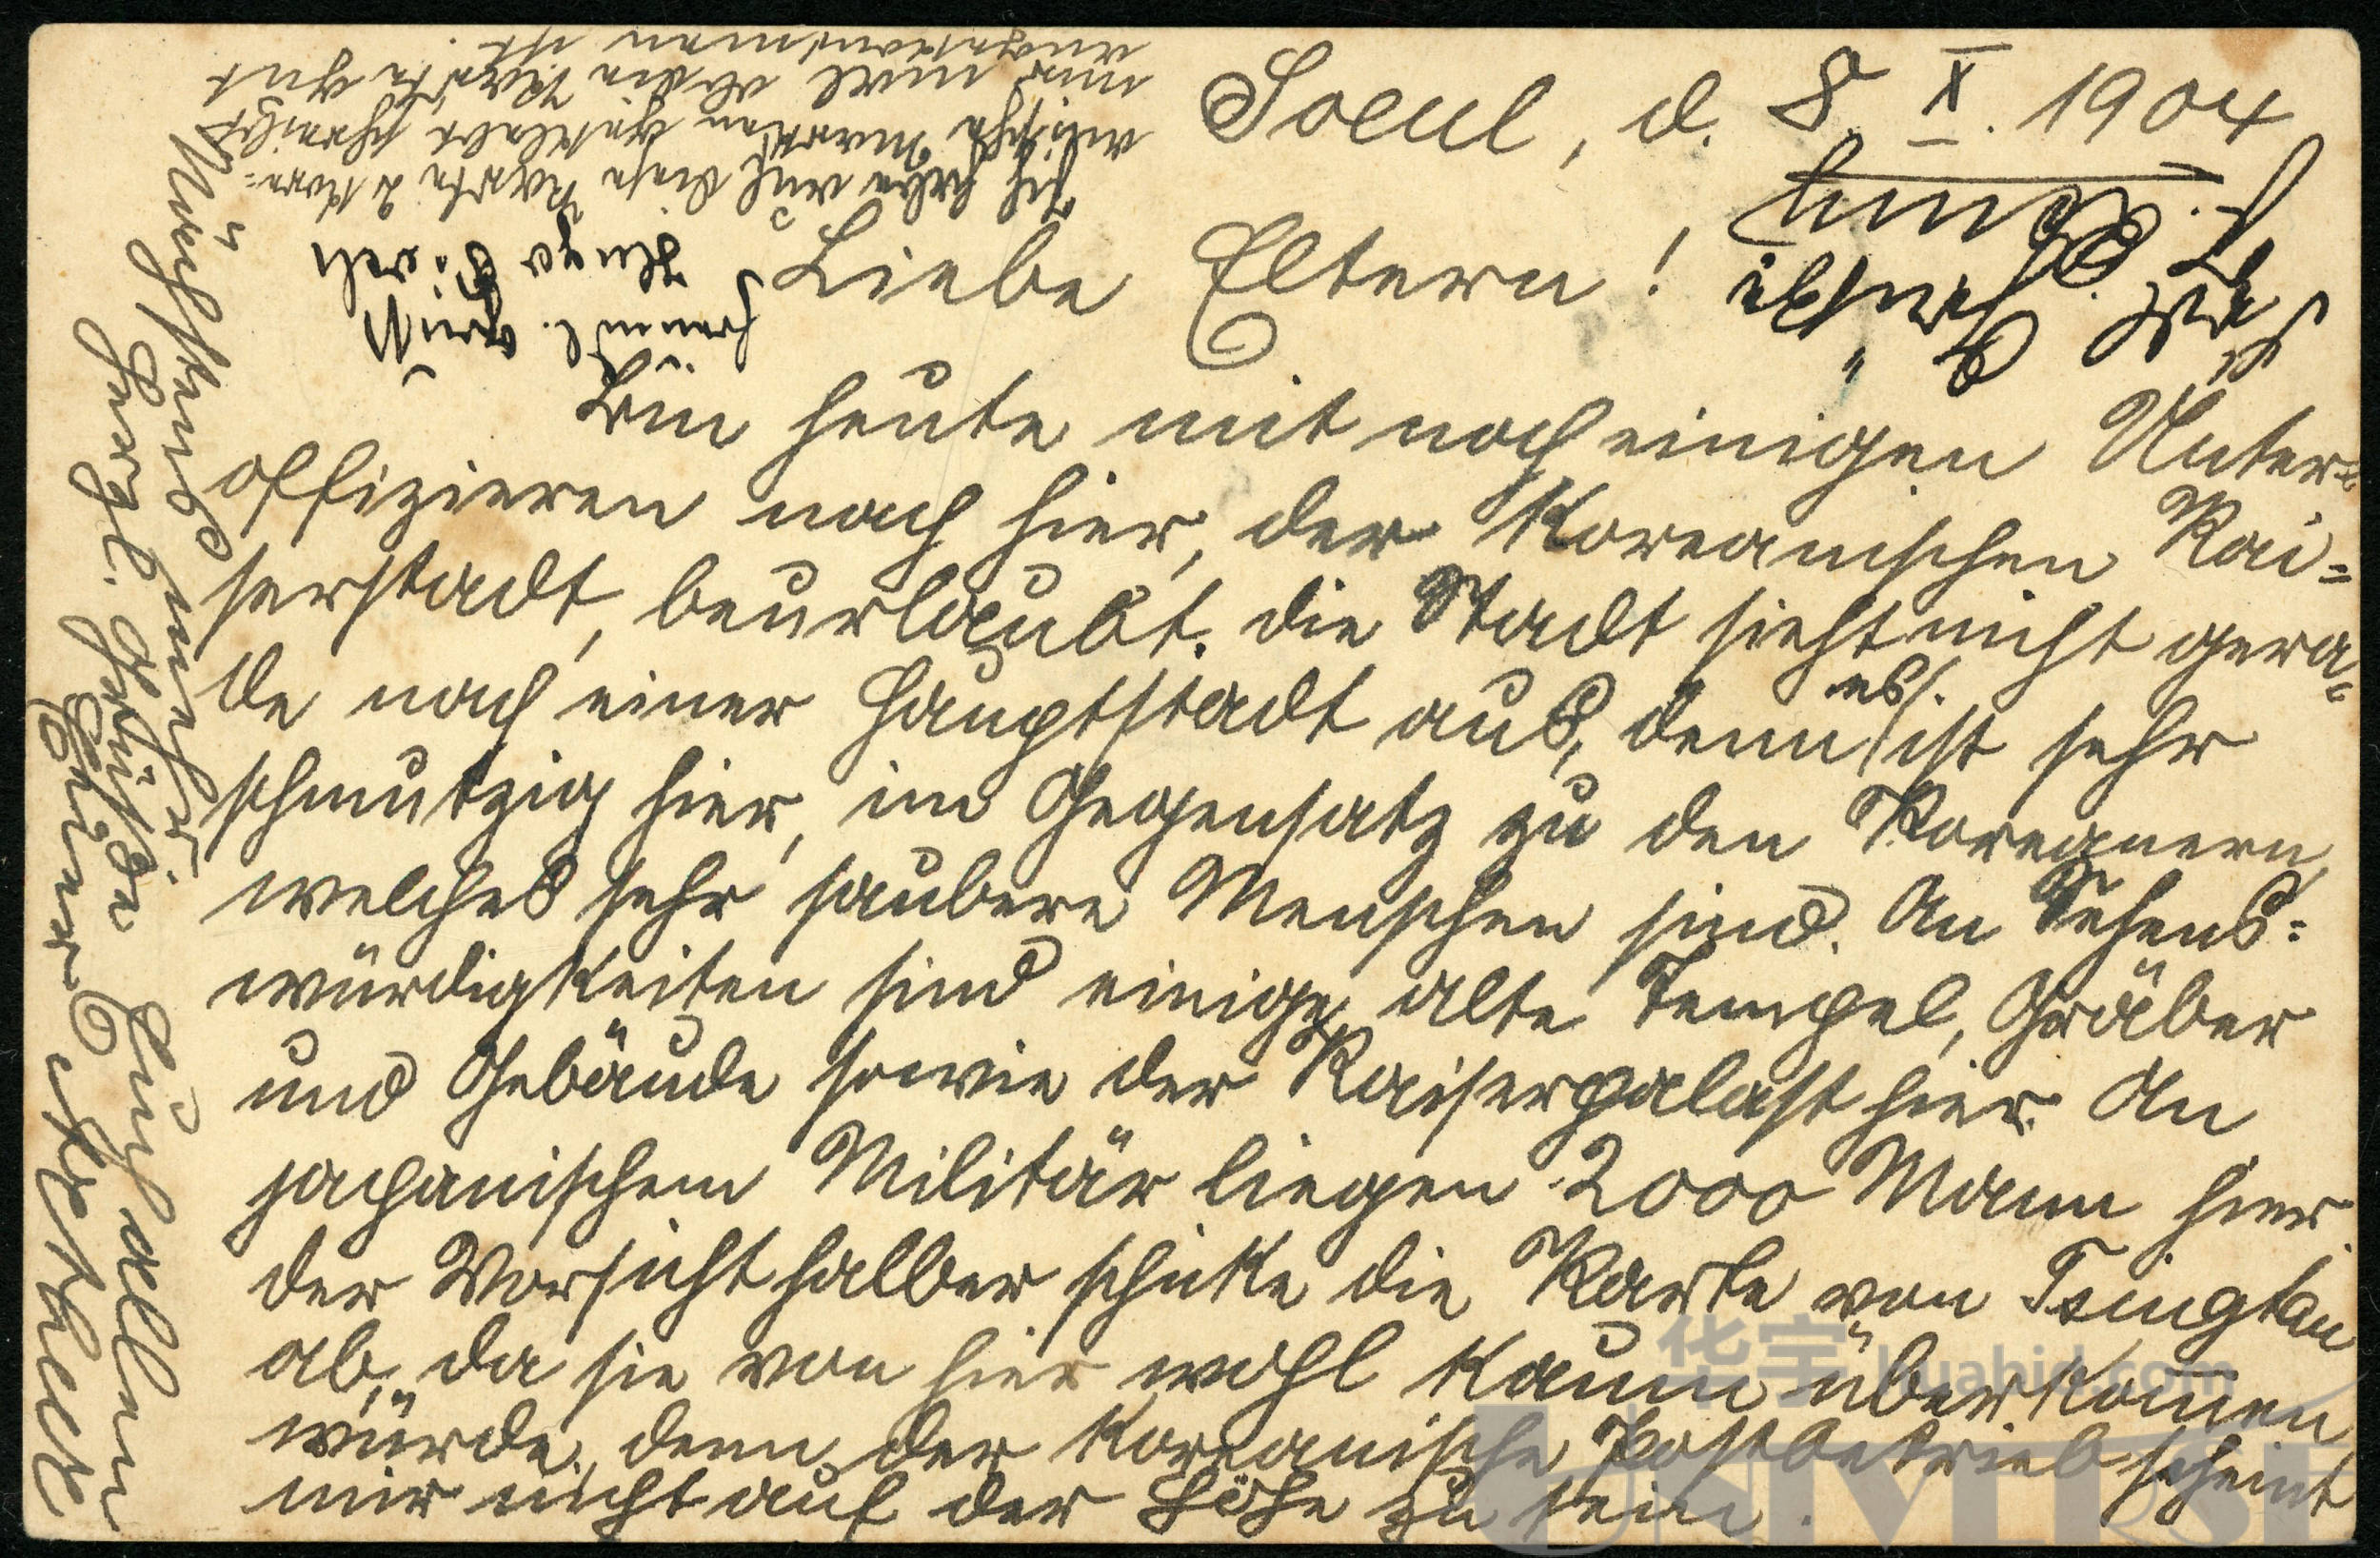 Soeul, d. 8. X. 1904
Liebe Eltern!
Bin heute mit noch einigen Unter=
offizieren nach hier, der Koreanischen Kai=
serstadt, beurlaubt. die Stadt sieht nicht gera=
de nach einer Hauptstadt aus, denn es ist sehr
schmutzig hier, im Gegensatz zu den Koreanern,
welches sehr saubere Menschen sind. An Sehens=
würdigkeiten sind einige alte Tempel, Gräber
und Gebäude sowie der Kaiserpalast hier. An
japanischem Militär liegen 2000 Mann hier.
der Vorsicht halber schicke die Karte von Tsingtau
ab, da sie von hier wohl kaum überkommen
würde, denn der Koreanische Postbetrieb scheint
mir nicht auf der Höhe zu sein.
Nächstens mehr.
Herzl. Grüße Euch allen
Euer
Ich habe auf diese Karte 2 Kore=
anische Marken geklebt schreibt
mir mal ob die Karte gut
angekommen ist.
freundl. Gruß
Hugo
华宇 huabid.com